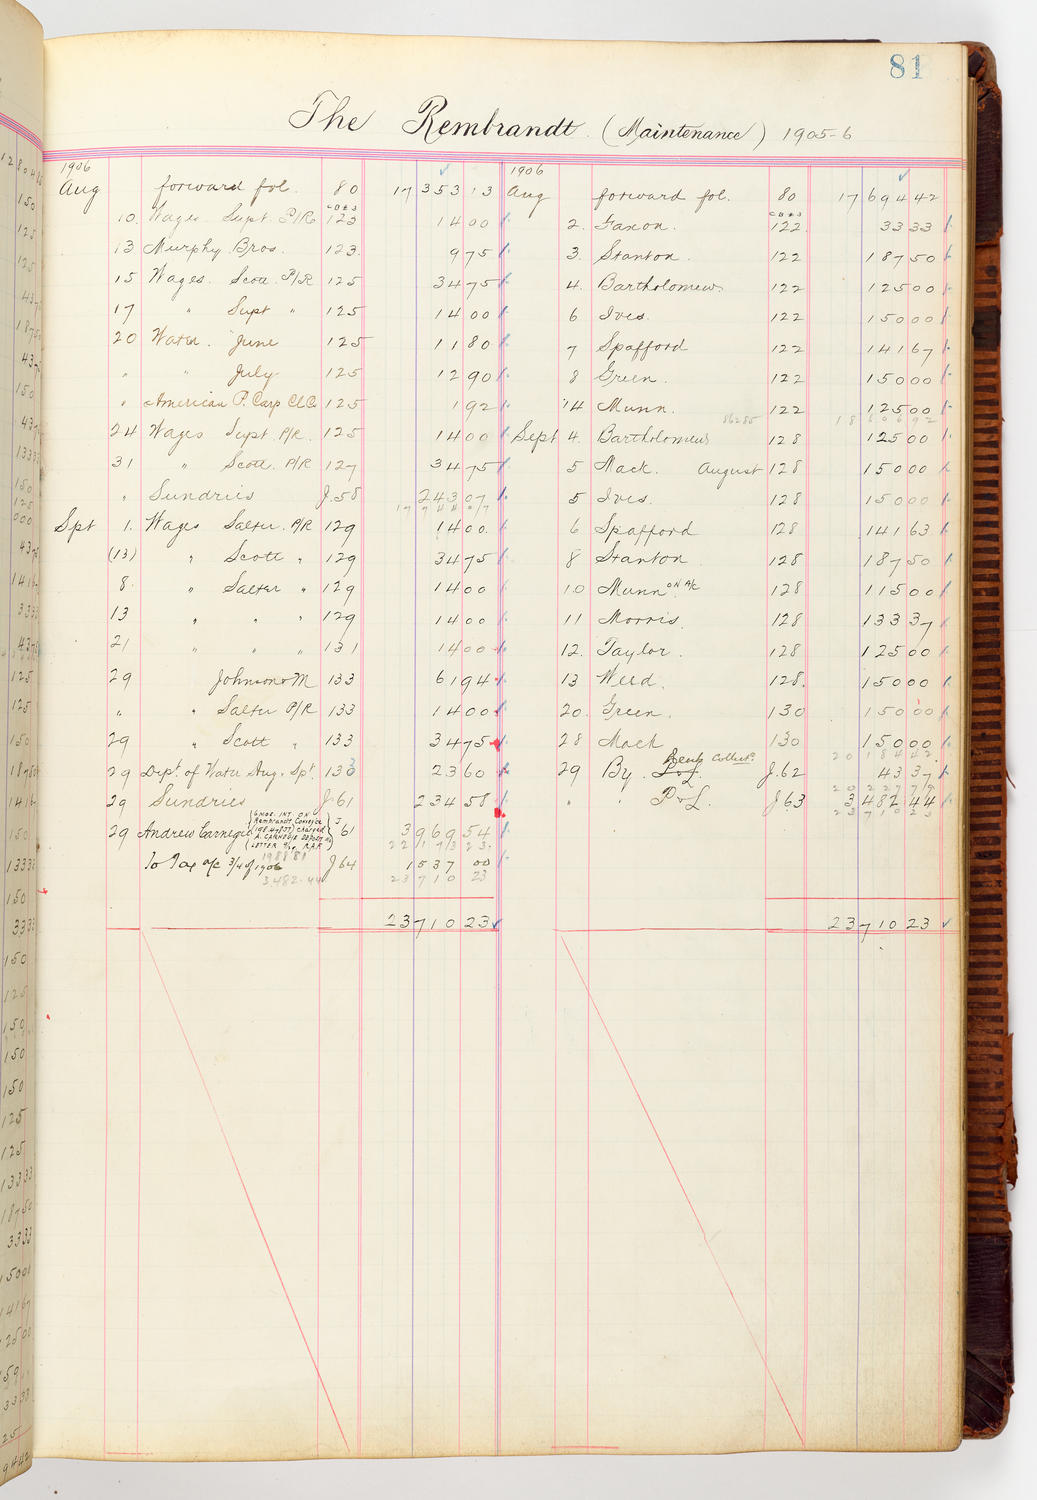 81
The Rembrandt (Maintenance) 1905-6
1906
Aug forward fol. 80 17 353 13
10. Wages Supt. P/R 123 14 00
13 Murphy Bros. 123 9 75
15 Wages. Scott P/R 125 34 75
17 " Supt " 125 14 00
20 Water. June 125 11 80
" " July 125 12 90
" American P. Carp Cl Co 125 1 92
24 Wages Supt P/R. 125 14 00
31 " Scott. P/R 127 34 75
" Sundries J.58 243 07
17 744 07
Spt 1. Wages Salter P/R 129 14 00.
(13) " Scott " 129 34 75
8. " Salter " 129 14 00
13 " " " 129 14 00
21 " " " 131 14 00
29 Johnson & M 133 61 94
" " Salter P/R 133 14 00
29 " Scott " 133 34 75
29 Dept. of Water Aug. Spt. 133 23 60
29 Sundries J 61 234 58
29 Andrew Carnegie J 61 3 969 54
6 MOS. INT. ON
Rembrandt, Carnegie
(198.477.57) charged
A. CARNEGIE DEPOSIT a/c
LETTER R.A.F.
22 173 23
To Tax a/c 3/4 of 1906 J 64 1 537 00
1988 81
3,482.44
23 710 23
23 710 23
1906
Aug forward fol. 80 17 694 42
2. Gaxon. 122 33 33
3. Stanton. 122 187 50
4. Bartholomew 122 125 00
6 Ives. 122 150 00
7 Spafford 122 141 67
8 Green. 122 150 00
14 Munn. 122 125 00
862 85
18 606 92
Sept 4. Bartholomew 128 125 00
5 Mack. August 128 150 00
5 Ives. 128 150 00
6 Spafford 128 141 63
8 Stanton. 128 187 50
10 Munn on A/c 128 115 00
11 Morris. 128 133 37
12. Taylor. 128 125 00
13 Weed. 128. 150 00
20. Green. 130 150 00
28 Mack 130 150 00
20 184 42
29 By Rent Collect. J.62 43 37
20 227 79
" " P & L. J 63 3 482 44
23 710 23
23 710 23